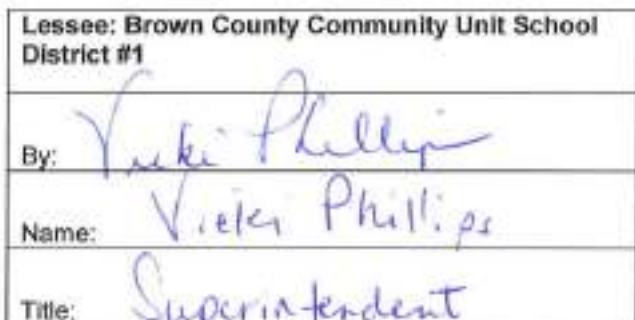 Lessee: Brown County Community Unit School
District #1
By: Vicki Phillips
Name: Vicki Phillips
Title: Superintendent